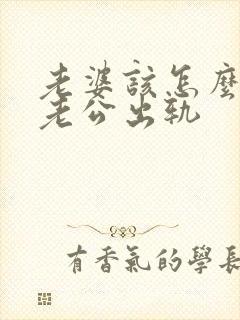 老婆該怎麼
老公出軌
有香氣的學長